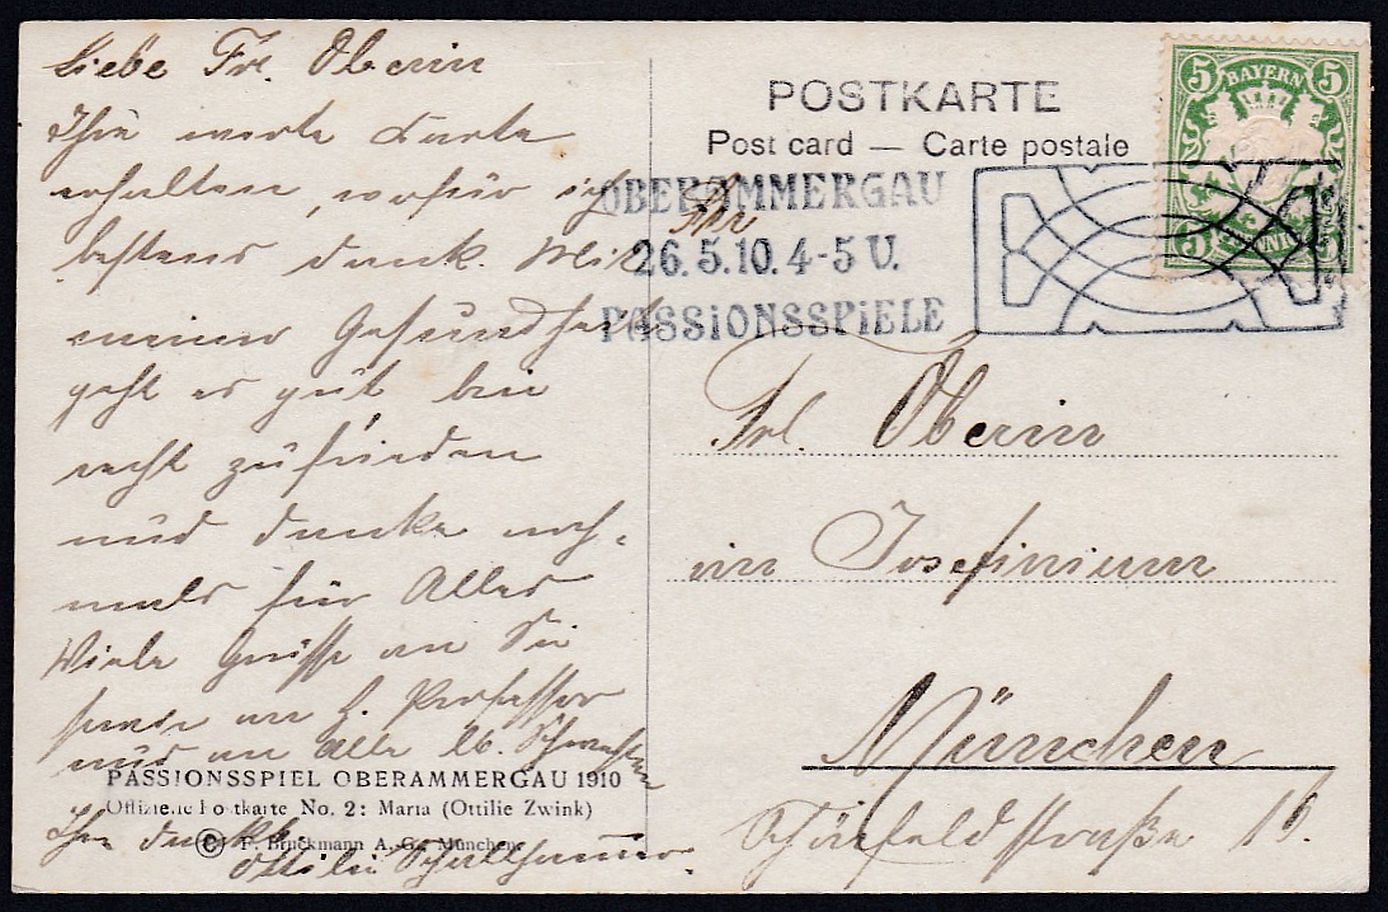 Liebe Frl. Oberin
Ihre werte Karte
erhalten, wofür ich Ihr
bestens dank. Mit
meiner Gesundheit
geht es gut bin
recht zufrieden
und danke noch-
mals für Alles
Viele Grüsse an Sie
sowie an H. Professor
und an alle lb. Schwestern
Ihre dankb.
Ottilie
PASSIONSSPIEL OBERAMMERGAU 1910
Offizielle Postkarte No. 2: Maria (Ottilie Zwink)
© F. Bruckmann A.-G., München.
POSTKARTE
Post card — Carte postale
BAYERN
5 5
5 PFENNIG 5
OBERAMMERGAU
26.5.10.4-5 U.
PASSIONSSPIELE
Frl. Oberin
im Josefinium
München
Schönfeldstraße 16.